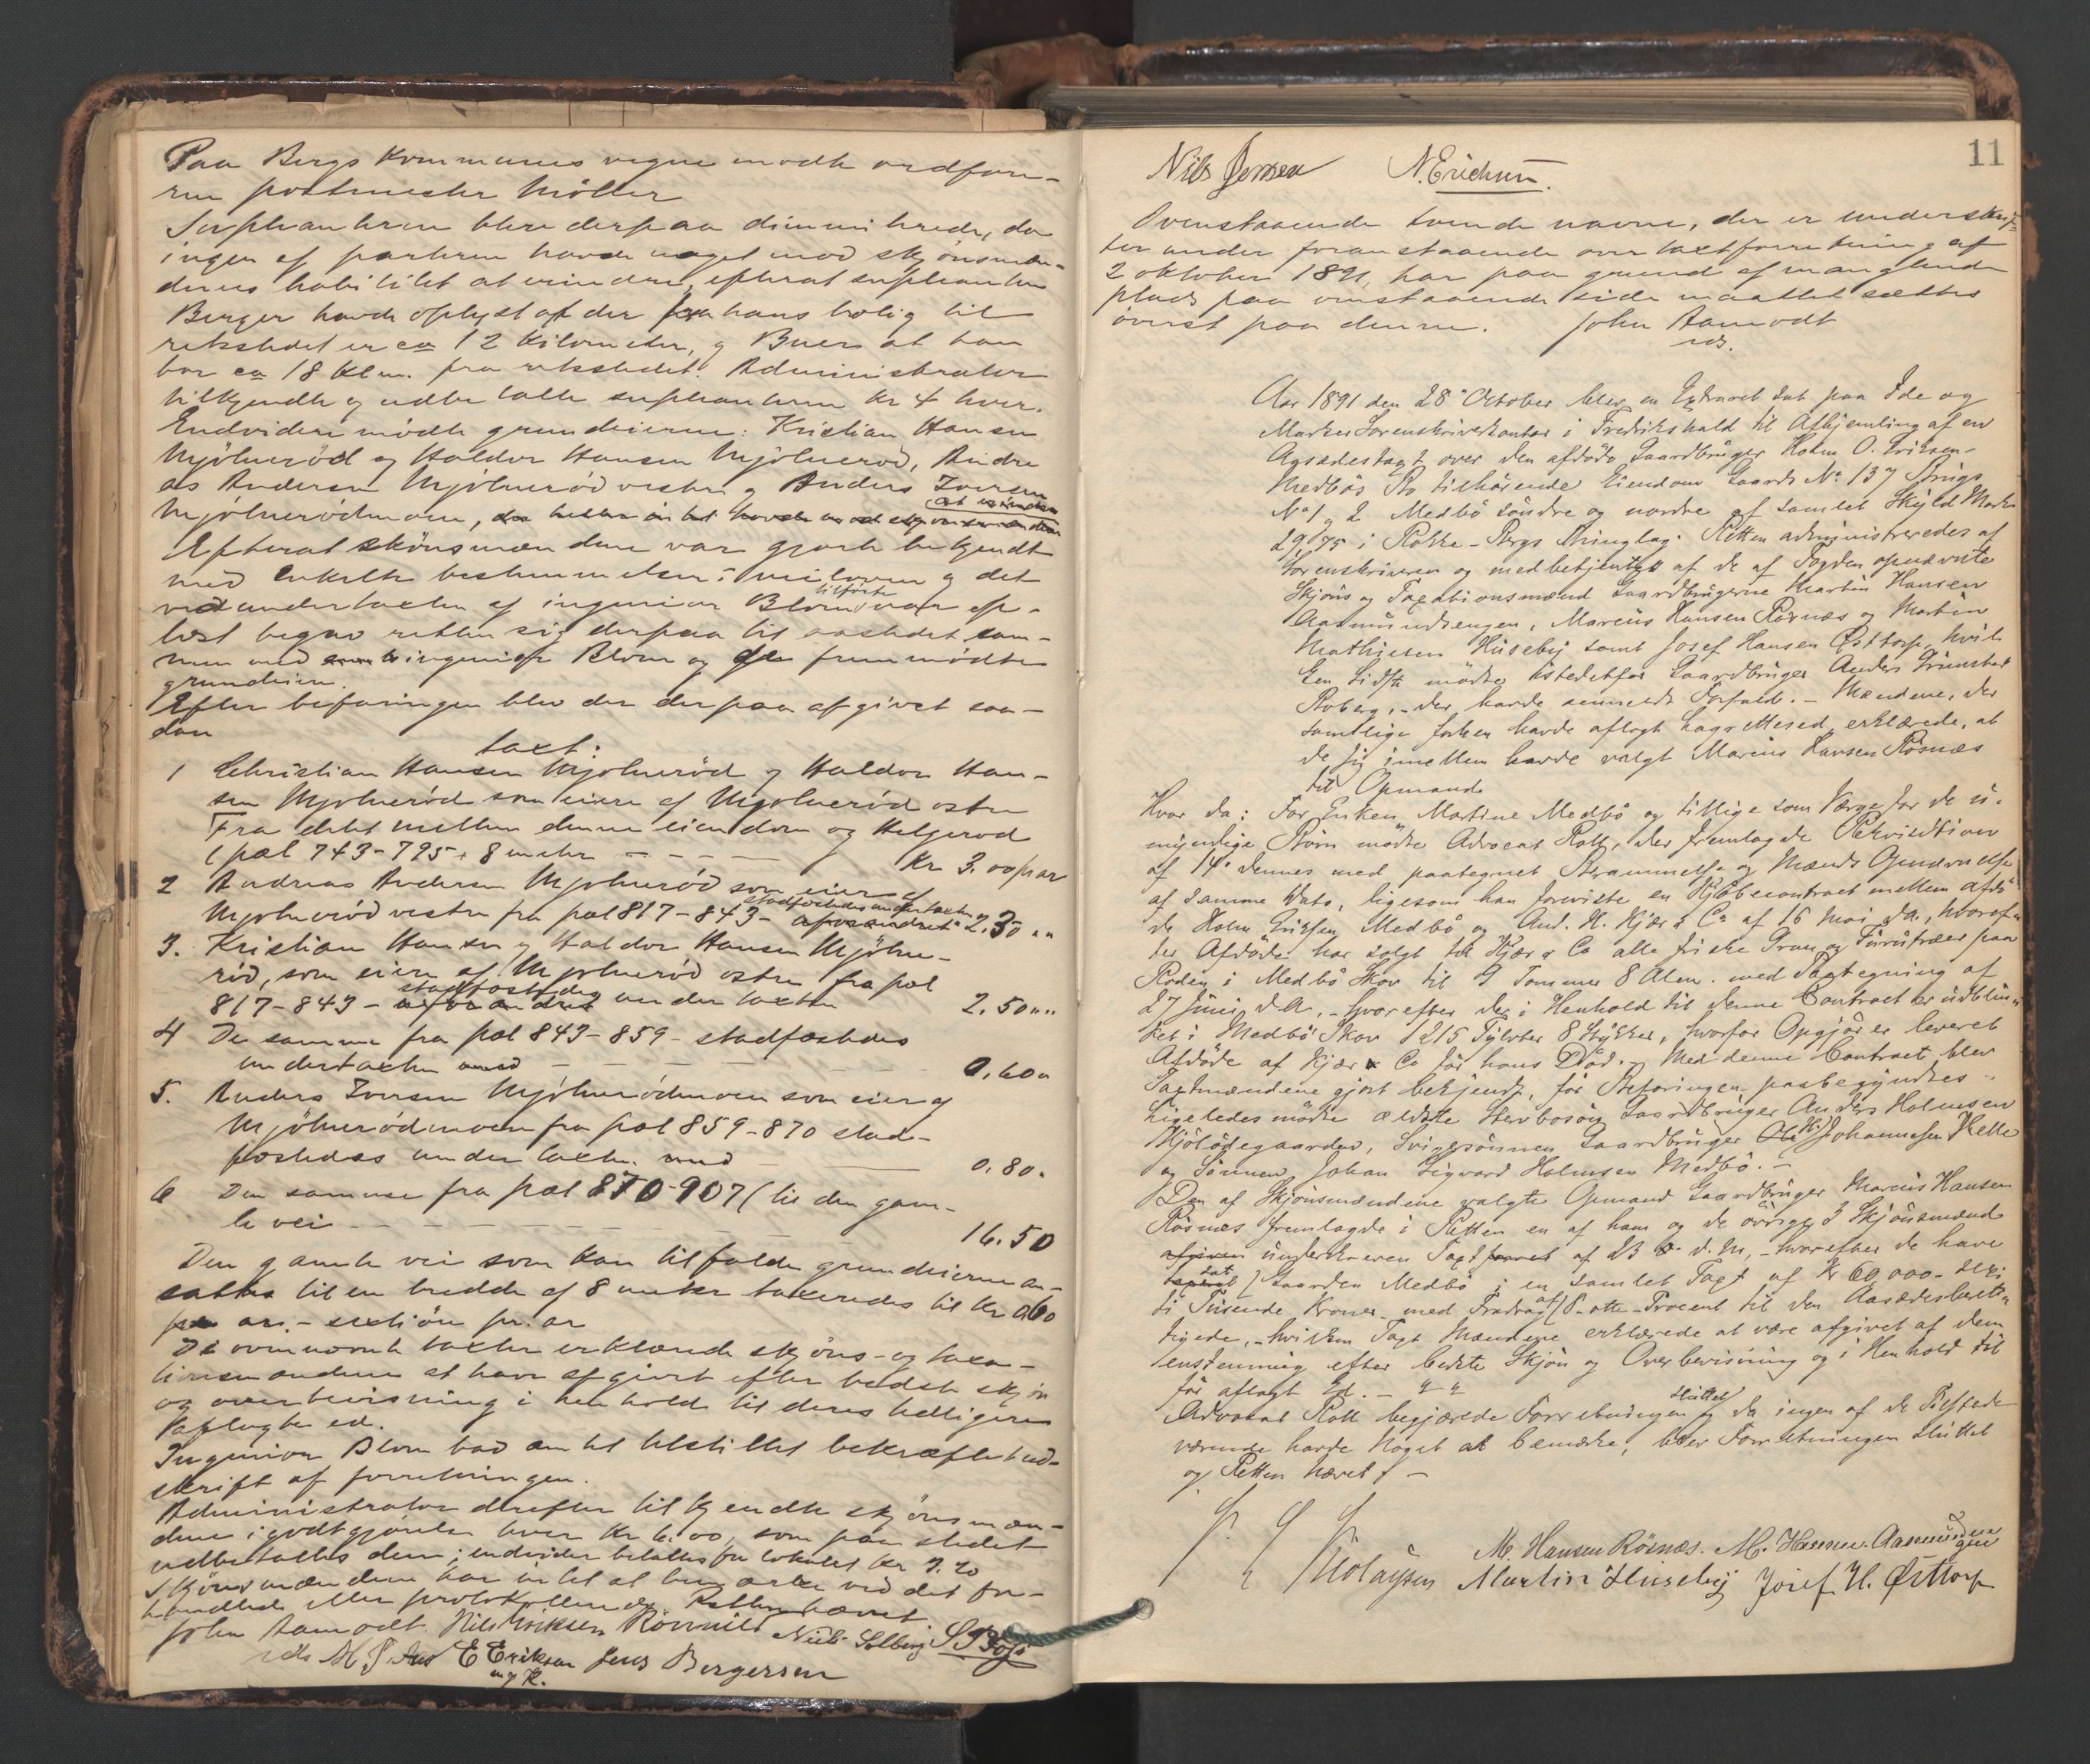 Paa Bergs kommunes vegne mødte ordføre-
ren postmester Møller
Suppleanterne blev derpaa dimmitterede, da
ingen af parterne havde noget mod skjønsmæn-
denes habilitet at erindre, efterat suppleanten
Berger havde oplyst at der fra hans bolig til
retsstedet er ca 12 kilometer, og Buer at han
bor ca 18 klm. fra retsstedet. Administrator
tilkjendte og udbetalte suppleanterne kr 4 hver.
Endvidere mødte grundeierne: Kristian Hansen
Mjølnerød og Haldor Hansen Mjølnerød, Andre
as Andersen Mjølnerød vestre og Anders Iversen
Mjølnerødmoen,
Efterat skönsmændene var gjort bekjendt
med enkelte bestemmelser i veiloven og det
ved undertaxten af ingeniør Blom tilførte var op-
læst begav retten sig derpaa til aastedet sam-
men med ingeniør Blom og de fremmødte
grundeiere.
Efter befaringen blev der derpaa afgivet saa-
dan
taxt:
1 Christian Hansen Mjølnerød og Haldor Han-
sen Mjølnerød som eiere af Mjølnerød østre
Fra delet mellem denne eiendom og Helgerød
(pæl 743-795+8 meter - - - - kr 3.00 pr ar
2 Andreas Andersen Mjølnerød som eier af
Mjølnerød vestre fra pæl 817-843- stadfæstedes undertaxten 2.30 " "
3. Kristian Hansen og Haldor Hansen Mjølne-
rød, som eiere af Mjølnerød østre fra pæl
817-843- stadfæstedes undertaxten 2.50 " "
4 De samme fra pæl 843-859- stadfæstedes
undertaxten med - - - 0.60 "
5. Anders Iversen Mjølnerödmoen som eier af
Mjølnerødmoen fra pæl 859-870 stad-
fæstedes undertaxten med - 0.80 "
6 Den samme fra pæl 870-907 (til den gam-
le vei - - - - - 16.50
Den gamle vei som kan tilfalde grundeierne an-
sættes til en bredde af 8 meter taxeredes til kr 0.60
pr ar. - sexti øre pr. ar
De ovennævnte taxter erklærede skjøns- og taxa-
tionsmændene at have afgivet efter bedste skjøn
og overbevisning i henhold til deres tidligere
aflagte ed.
Ingeniør Blom bad om at tilstillet bekræftet ud-
skrift af forretningen.
Administrator derefter tilkjendte skjønsmæn-
dene i godtgjørelse hver kr 6.00, som paa stedet
udbetaltes dem; endvidere betaltes for lokalet kr 7.20
Skjønsmændene har intet at bemærke ved det for-
handlede eller protokollerede. Retten hævet
John Aamodt Nils Eriksen Rönnild Niels Solberg
E Eriksen Jens Bergersen
m. p. P.
11
Nils Jensen N. Erichsen.
Ovenstaaende tvende navne, der er underskrif-
ter under foranstaaende overtaxtforretning af
2 oktober 1891, har paa grund af manglende
plads paa omstaaende side maattet sættes
överst paa denne. John Aamodt
Aar 1891 den 28 October blev en Extraret sat paa Ide og
Marker Sorenskriverkontor i Fredrikshald til Afhjemling af en
Aasædestaxt over den afdøde Gaardbruger Holm O. Eriksen
Medbös Bo tilhørende Eiendom Gaards No 137 Brugs
No 1 og 2 Medbö söndre og nordre af samlet Skyld Mark
29.75 i Rokke - Bergs Thinglag. Retten administreredes af
Sorenskriveren og medbetjentes af de af Fogden opnævnte
Skjöns og Taxationsmænd Gaardbrugerne Martin Hansen
Aasmundsengen, Marcus Hansen Rösnæs og Martin
Mathisen Huseby samt Josef Hansen Østtorp, hvil-
ken sidste mødte istedetfor Gaardbruger Anders Grimstad
Roberg, - der havde anmeldt Forfald. - Mændene, der
samtlige forhen havde aflagt Lagrettesed, erklærede, at
de sig imellem havde valgt Marcus Hansen Rösnæs
til Opmand
Hvor da: For Enken Martine Medbö og tillige som Værge for de u-
myndige Börn mødte Advocat Roll, der fremlagde Rekvisition
af 14 dennes med paategnet Berammelse og Mænds Opnævnelse
af samme Dato, ligesom han foreviste en Kjöbecontract mellem afdö-
de Holm Eriksen Medbö og And. H. Kjær & Co af 16 Mai d.A., hvoraf
der Afdöde har solgt til Kjær & Co alle friske Gran og Furutræer paa
Roden i Medbö Skov til 9 Tommer 8 Alen. med Paategning af
27 Juni d.A., - hvorefter der i Henhold til denne Contract er udblin-
ket i Medbö Skov 1215 Tylvter 8 Stykker, hvorfor Opgjör er leveret
Afdöde af Kjær & Co för hans Död. - Med denne Contract blev
Taxtmændene gjort bekjendt, för Befaringen paabegyndtes.
Ligeledes mødte ældste Stervbosön Gaardbruger Anders Holmsen
Mjölödegaarden, Svigersönnen Gaardbruger Johannesen Kelle
og Sönnen Johan Sigvard Holmsen Medbö. -
Den af Skjönsmændene valgte Opmand Gaardbruger Marcus Hansen
Rösnæs fremlagde i Retten en af ham og de övrige 3 Skjönsmænd
underskreven Taxt af 23 d.M., - hvorefter de have
sat Gaarden Medbö i en samlet Taxt af Kr 60,000 - sex-
ti Tusende Kroner med Fradrag af 8 - otte - Procent til den Aasædesberet-
tigede, - hvilken Taxt Mændene erklærede at være afgivet af dem
enstemmig efter bedste Skjön og Overbevisning og i Henhold til
för aflagt Ed. -
Advocat Roll begjærede Forretningen sluttet og da ingen af de Tilstede
værende havde Noget at bemærke, blev Forretningen sluttet
og Retten hævet. -
M. Hansen Rösnæs. M. Hansen Aasmundsengen
Martin Huseby Josef H. Østtorp